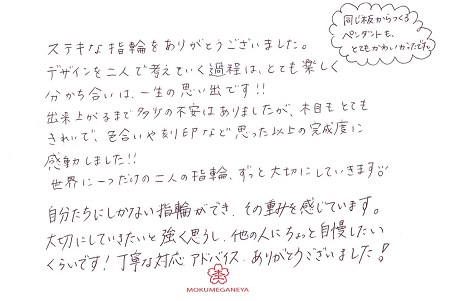 同じ板からつくる
ペンダントも、
とてもかわいかったです。
ステキな指輪をありがとうございました。
デザインを二人で考えていく過程は、とても楽しく
分かち合いは、一生の思い出です!!
出来上がるまで多少の不安はありましたが、木目もとても
きれいで、色合いや刻印など思った以上の完成度に
感動しました!!
世界に一つだけの二人の指輪、ずっと大切にしていきます
自分たちにしかない指輪ができ、その重みを感じています。
大切にしていきたいと強く思うし、他の人にちょっと自慢したい
くらいです!丁寧な対応、アドバイス、ありがとうございました!
MOKUMEGANEYA